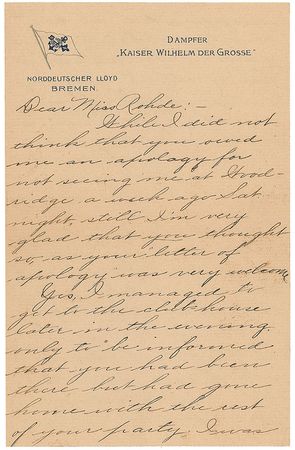 DAMPFER
„KAISER WILHELM DER GROSSE"
NORDDEUTSCHER LLOYD
BREMEN.
Dear Miss Rohde:-
While I did not
think that you owed
me an apology for
not seeing me at Wood-
ridge a week ago Sat
night, still I'm very
glad that you thought
so, as your "letter of
apology" was very welcome.
Yes, I managed to
get to the club house
later in the evening,
only to be informed
that you had been
there but had gone
home with the rest
of your party. I was